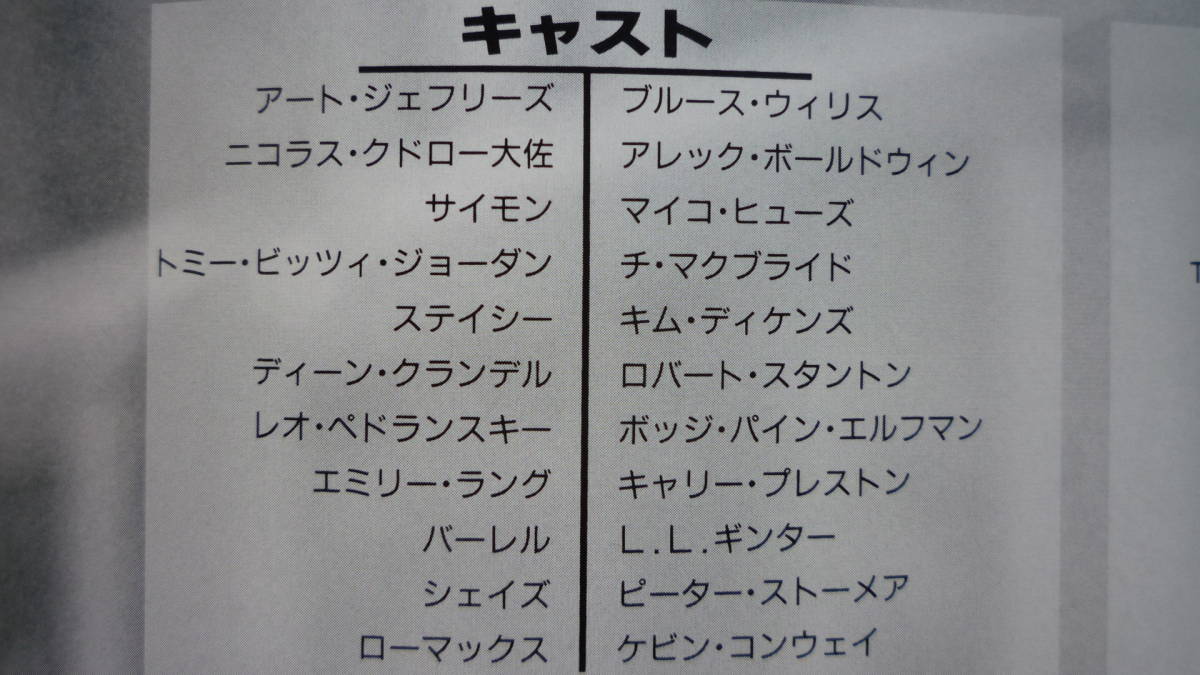 キャスト
アート・ジェフリーズ ブルース・ウィリス
ニコラス・クドロー大佐 アレック・ボールドウィン
サイモン マイコ・ヒューズ
トミー・ビッツィ・ジョーダン チ・マクブライド
ステイシー キム・ディケンズ
ディーン・クランデル ロバート・スタントン
レオ・ペドランスキー ボッジ・パイン・エルフマン
エミリー・ラング キャリー・プレストン
バーレル L.L.ギンター
シェイズ ピーター・ストーメア
ローマックス ケビン・コンウェイ